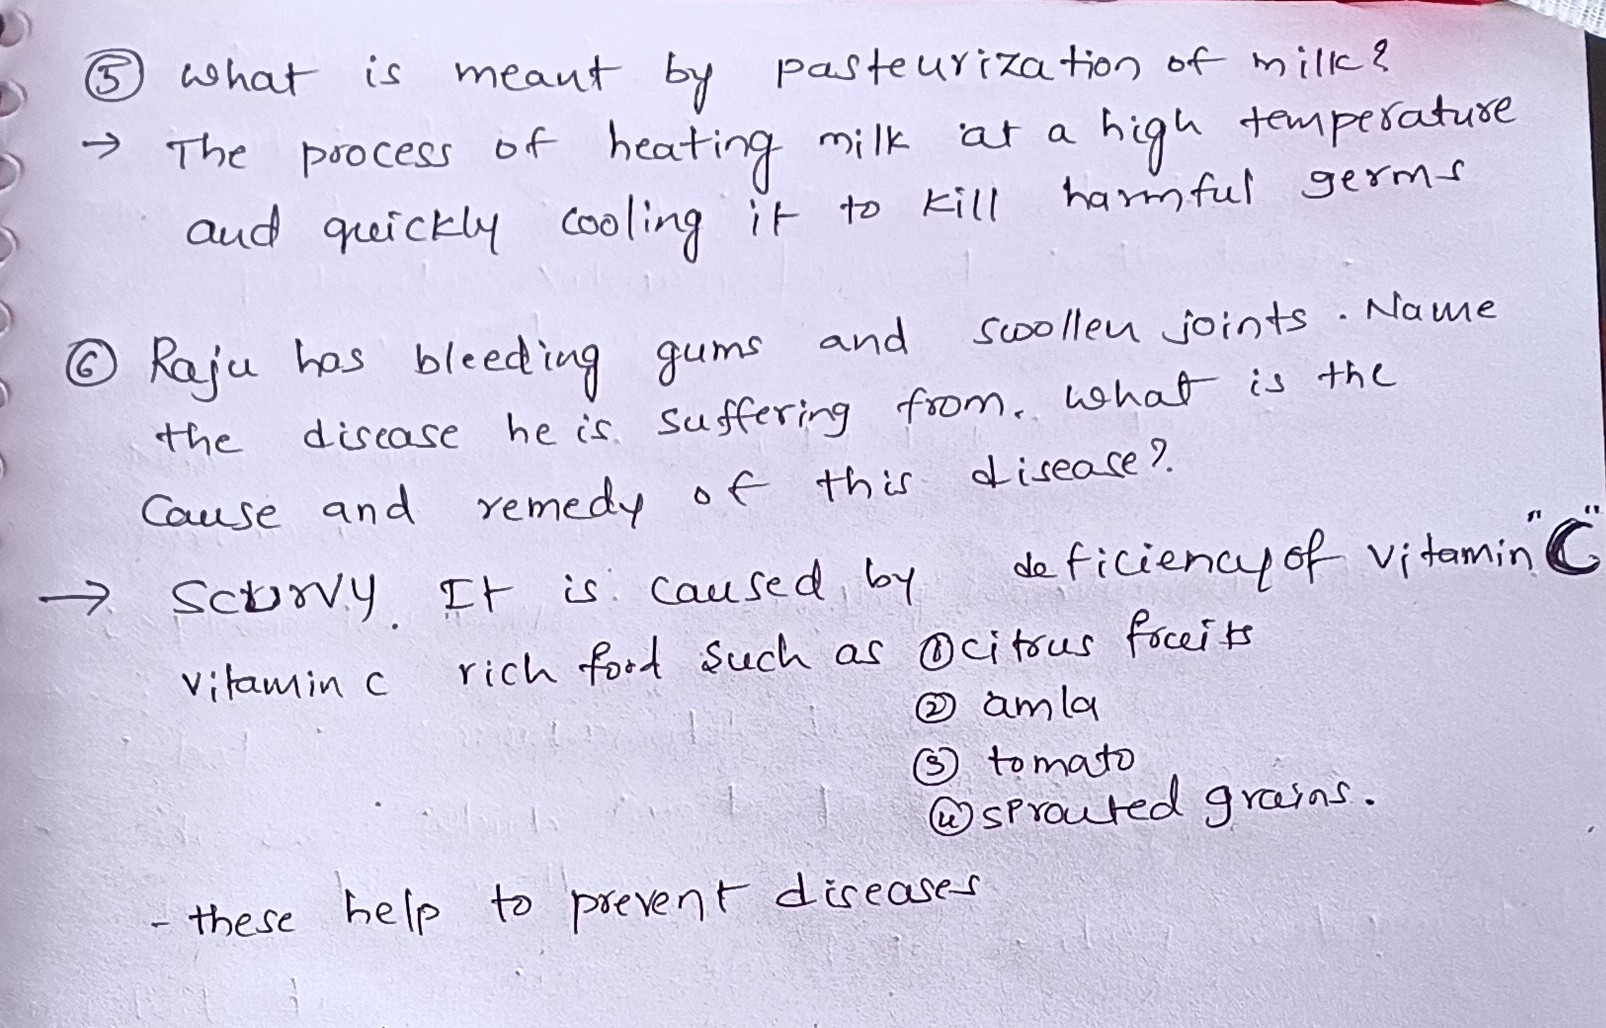 ⑤ what is meant by pasteurization of milk?
→ The process of heating milk at a high temperature
and quickly cooling it to kill harmful germs
⑥ Raju has bleeding gums and swollen joints. Name
the disease he is suffering from. what is the
Cause and remedy of this disease?
→ Scurvy. It is caused by deficiency of vitamin "C"
vitamin c rich food such as ① citrus fruits
② amla
③ tomato
④ sprouted grains.
- these help to prevent diseases